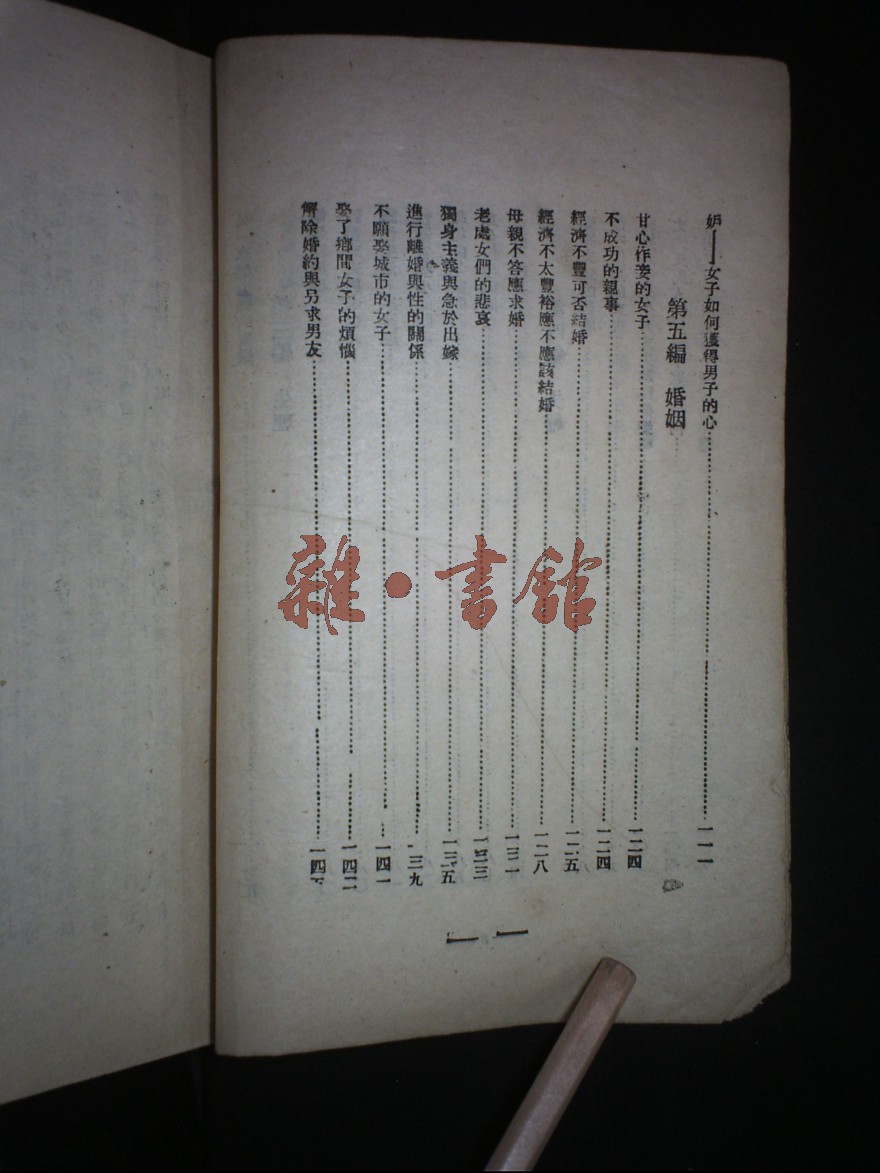 妒——女子如何獲得男子的心……一一一
第五編　婚姻
甘心作妾的女子……一二四
不成功的親事……一二四
經濟不豐可否結婚……一二五
經濟不太豐裕應不應該結婚……一二八
母親不答應求婚……一三一
老處女們的悲哀……一三三
獨身主義與急於出嫁……一三五
進行離婚與性的關係……一三九
不願娶城市的女子……一四一
娶了鄉間女子的煩惱……一四二
解除婚約與另求男友……一四五
雜·書館